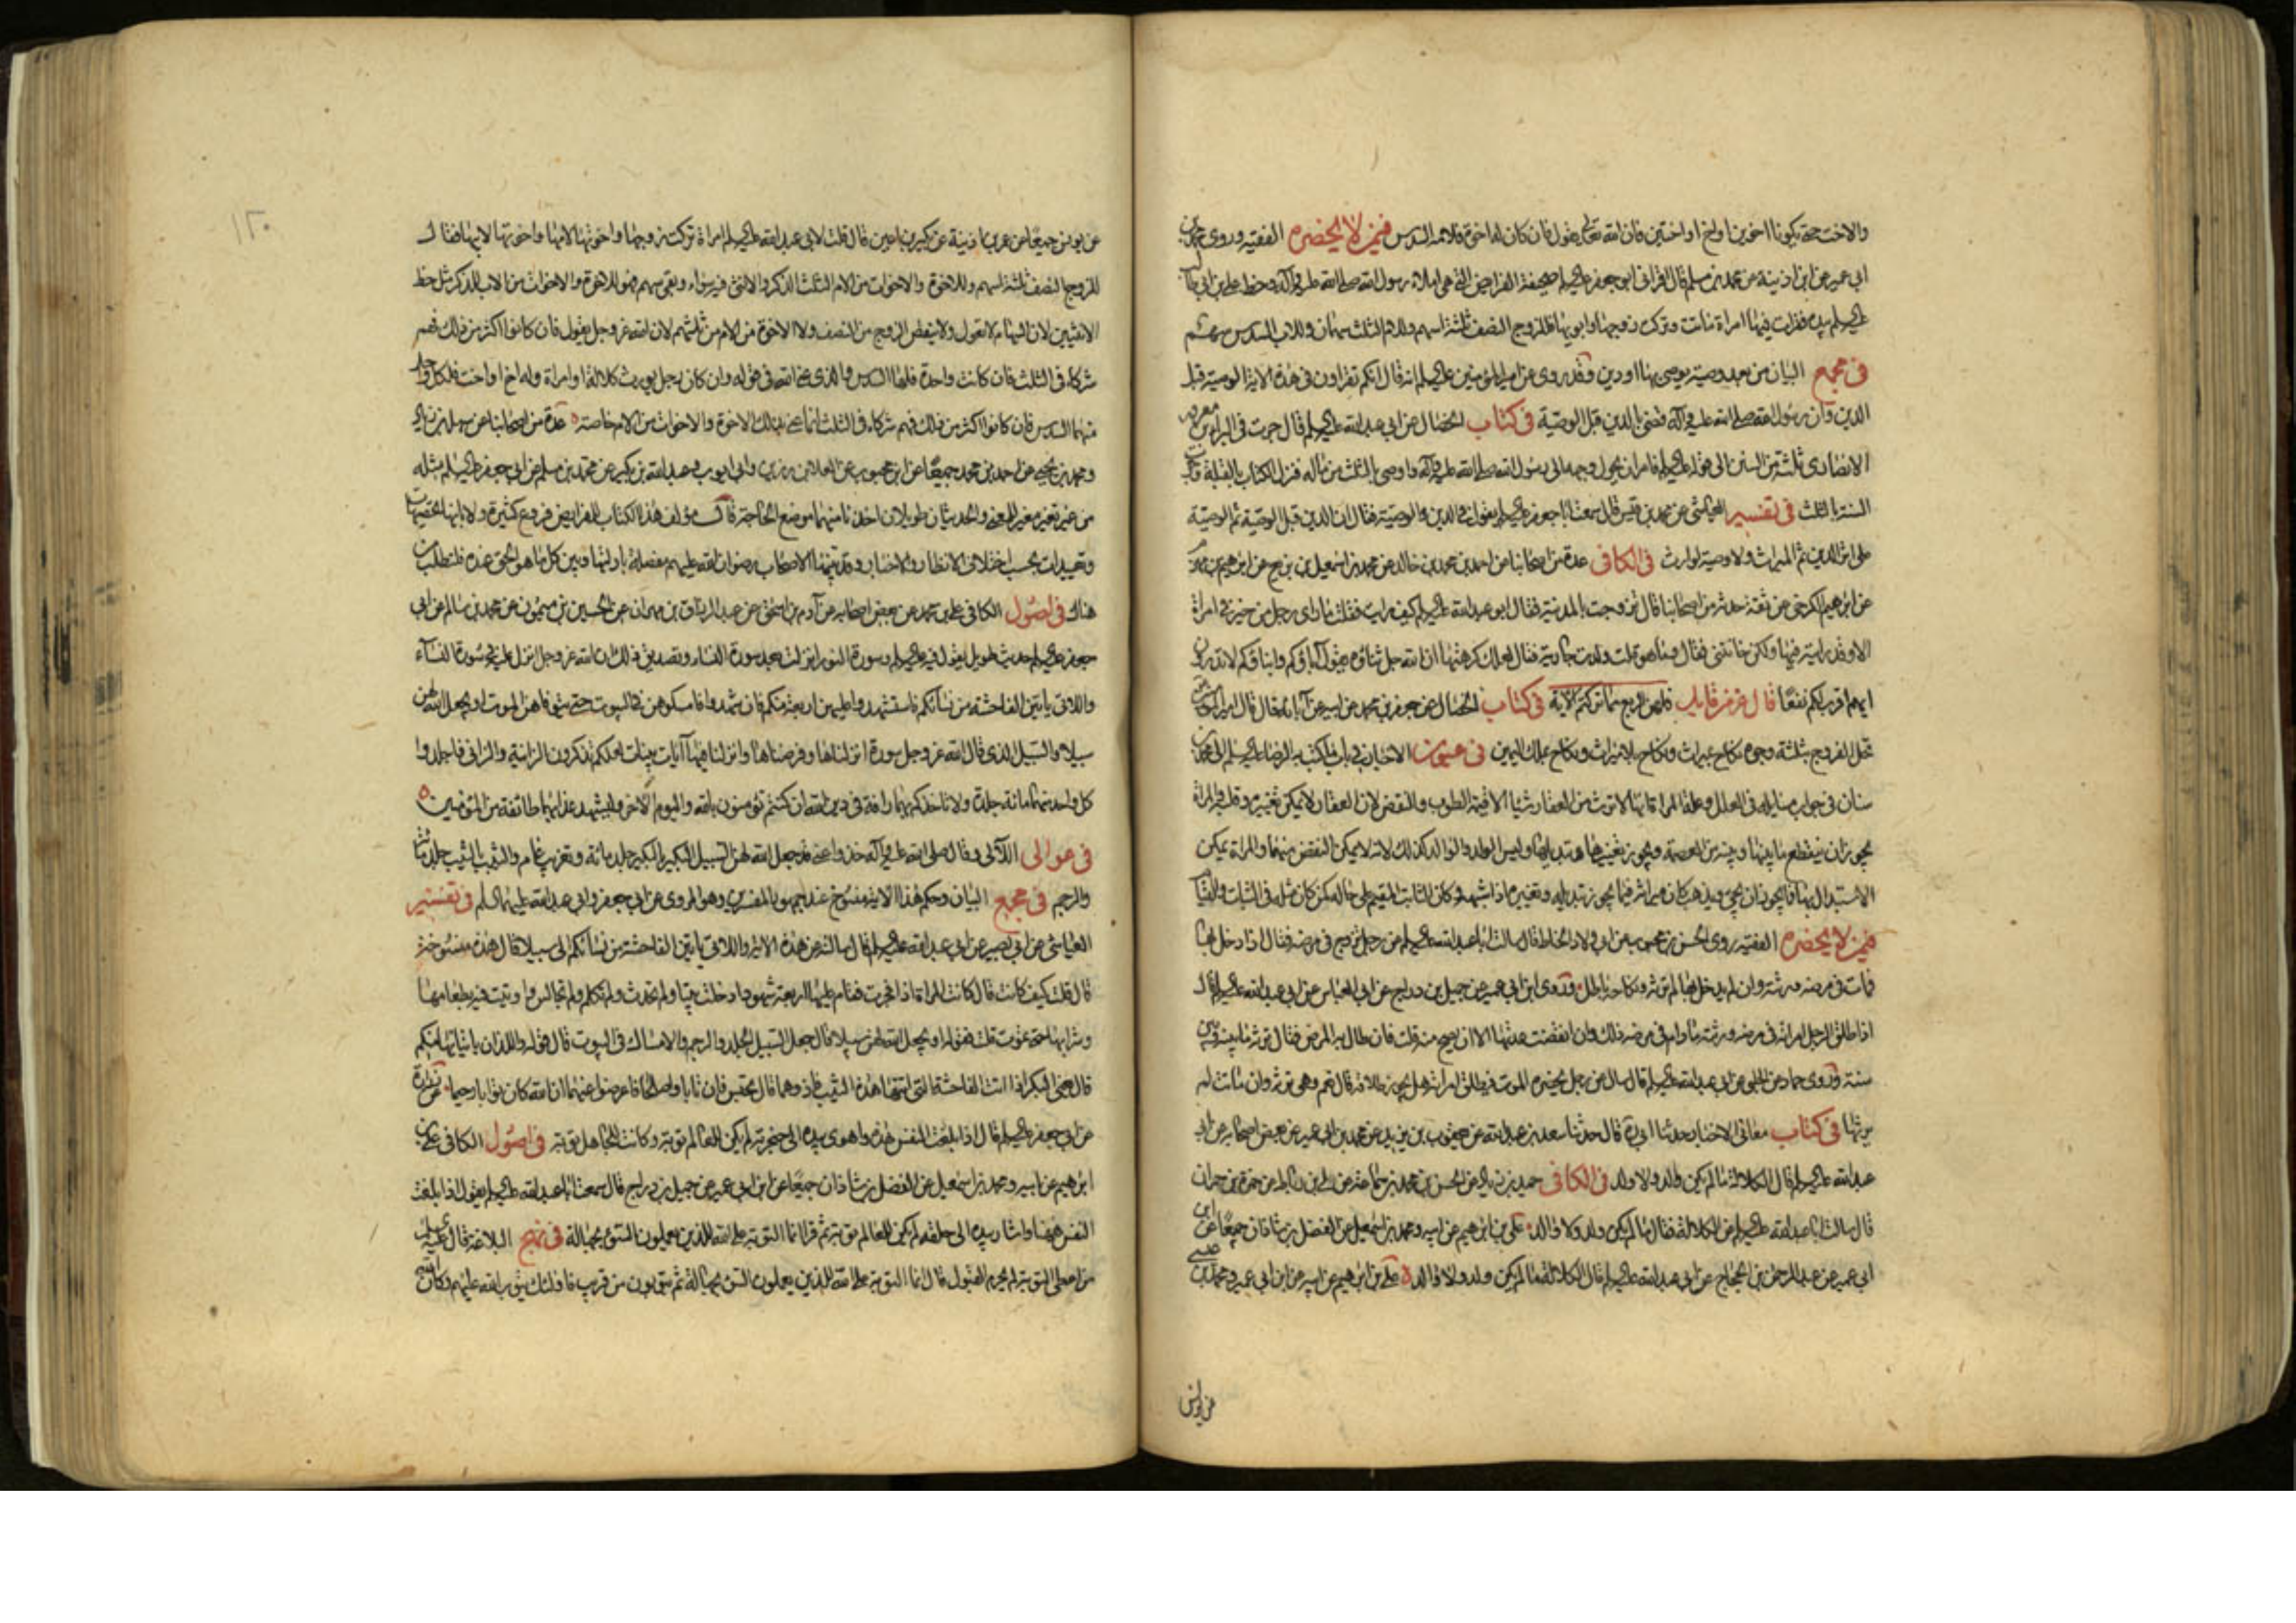 والاخت حتى يكونا اخوين او اخ او اختين فان الله تعالى يقول فان كان له اخوة فلامه السدس فيمن لا يحضره الفقيه وروى محمد بن
ابى عمير عن ابن اذينة عن محمد بن مسلم قال اقرانى ابو جعفر عليه السلم صحيفة الفرايض التى هى املاء رسول الله صلى الله عليه وآله وخط على بن ابى طالب
عليه السلم بيده فقرات فيها امراة ماتت وتركت زوجها وابويها فللزوج النصف ثلثة اسهم وللام الثلث سهمان وللاب السدس سهم
فى مجمع البيان من بعد وصية يوصى بها او دين وقد روى عن امير المؤمنين عليه السلم انه قال انكم تقراون فى هذه الاية الوصية قبل
الدين وان رسول الله صلى الله عليه وآله قضى بالدين قبل الوصية فى كتاب الخصال عن ابى عبد الله عليه السلم قال جرت فى البراء بن معرور
الانصارى ثلثة من السنن الى قوله عليه السلم فامر ان يحول وجهه الى رسول الله صلى الله عليه وآله واوصى بالثلث من ماله فنزل الكتاب بالقبلة وجرت
السنة بالثلث فى تفسير العياشى عن محمد بن قيس قال سمعت ابا جعفر عليه السلم يقول فى الدين والوصية فقال ان الدين قبل الوصية ثم الوصية
على اثر الدين ثم الميراث ولا وصية لوارث فى الكافى عدة من اصحابنا عن احمد بن محمد بن خالد عن محمد بن اسمعيل بن بزيع عن ابرهيم بن مهزم
عن ابرهيم الكرخى عن ثقة حدثه من اصحابنا قال تزوجت بالمدينة فقال ابو عبد الله عليه السلم كيف رايت فقلت ما راى رجل من خير فى امراة
الا وقد رايته فيها ولكن خانتنى فقال وما هو قلت ولدت جارية فقال لعلك كرهتها ان الله جل ثناؤه يقول آباؤكم وابناؤكم لا تدرون
ايهم اقرب لكم نفعا قال عز من قايل فلهن الربع مما تركتم الاية فى كتاب الخصال عن جعفر بن محمد عن ابيه عن آبائه قال قال امير المؤمنين
تحل الفروج بثلثة وجوه نكاح بميراث ونكاح بلا ميراث ونكاح ملك اليمين فى عيون الاخبار فى باب ما كتب به الرضا عليه السلم الى محمد بن
سنان فى جواب مسايله فى العلل وعلة المراة انها لا ترث من العقار شيئا الا قيمة الطوب والنقض لان العقار لا يمكن تغييره وقلبه والمراة
يجوز ان ينقطع ما بينها وبينه من العصمة ويجوز تغييرها وتبديلها وليس الولد والوالد كذلك لانه لا يمكن النقض منهما والمراة يمكن
الاستبدال بها فما يجوز ان يجئ ويذهب كان ميراثه فيما يجوز تبديله وتغييره اذا اشبهه وكان الثابت المقيم على حاله كمن كان مثله فى الثبات والقيام
فيمن لا يحضره الفقيه روى الحسن بن محبوب عن ابى ولاد الحناط قال سالت ابا عبد الله عليه السلم عن رجل تزوج فى مرضه فقال اذا دخل بها
فمات فى مرضه ورثته وان لم يدخل بها لم ترثه ونكاحه باطل وروى ابن ابى عمير عن جميل بن دراج عن ابى العباس عن ابى عبد الله عليه السلم قال
اذا طلق الرجل امراته فى مرضه ورثته ما دام فى مرضه ذلك وان انقضت عدتها الا ان يصح منه قلت فان طال به المرض فقال ترثه ما بينه وبين
سنة وروى حماد عن الحلبى عن ابى عبد الله عليه السلم قال سال عن رجل يحضره الموت فيطلق امراته هل يجوز طلاقه قال نعم وهى ترثه وان ماتت لم
يرثها فى كتاب معانى الاخبار حدثنا ابى ره قال حدثنا سعد بن عبد الله عن يعقوب بن يزيد عن محمد بن ابى عمير عن بعض اصحابه عن ابى
عبد الله عليه السلم قال الكلالة ما لم يكن والد ولا ولد فى الكافى حميد بن زياد عن الحسن بن محمد بن سماعة عن على بن رباط عن حمزة بن حمران
قال سالت ابا عبد الله عليه السلم عن الكلالة فقال ما لم يكن ولد ولا والد على بن ابرهيم عن ابيه ومحمد بن اسمعيل عن الفضل بن شاذان جميعا عن ابن
ابى عمير عن عبد الرحمن بن الحجاج عن ابى عبد الله عليه السلم قال الكلالة ما لم يكن ولد ولا والد على بن ابرهيم عن ابيه عن ابن ابى عمير ومحمد بن عيسى
عن يونس
عن يونس جميعا عن عمر بن اذينة عن بكير بن اعين قال قلت لابى عبد الله عليه السلم امراة تركت زوجها واخوتها لامها واخوتها لابيها فقال
للزوج النصف ثلثة اسهم وللاخوة والاخوات من الام الثلث الذكر والانثى فيه سواء وبقى سهم فهو للاخوة والاخوات من الاب للذكر مثل حظ
الانثيين لان السهام لا تعول ولا ينقص الزوج من النصف ولا الاخوة من الام من ثلثهم لان الله عز وجل يقول فان كانوا اكثر من ذلك فهم
شركاء فى الثلث فان كانت واحدة فلها السدس والذى عنى الله فى قوله وان كان رجل يورث كلالة او امراة وله اخ او اخت فلكل واحد
منهما السدس فان كانوا اكثر من ذلك فهم شركاء فى الثلث انما عنى بذلك الاخوة والاخوات من الام خاصة عدة من اصحابنا عن سهل بن زياد
ومحمد بن يحيى عن احمد بن محمد جميعا عن ابن محبوب عن العلا بن رزين وابى ايوب وعبد الله بن بكير عن محمد بن مسلم عن ابى جعفر عليه السلم مثله
من غير تغيير مغير للمعنى والحديثان طويلان اخذنا منهما موضع الحاجة قال مؤلف هذا الكتاب للفرايض فروع كثيرة ولاياتها تخصيصات
وتقييدات بحسب اختلاف الانظار والاخبار وقد بينها الاصحاب رضوان الله عليهم مفصلة بادلتها وبين كل ما هو الحق عنده فلتطلب من
هناك فى اصول الكافى على بن محمد عن بعض اصحابه عن آدم بن اسحق عن عبد الرزاق بن مهران عن الحسين بن ميمون عن محمد بن سالم عن ابى
جعفر عليه السلم حديث طويل يقول فيه عليه السلم وسورة النور انزلت بعد سورة النساء وتصديق ذلك ان الله عز وجل انزل عليه فى سورة النساء
واللاتى ياتين الفاحشة من نسائكم فاستشهدوا عليهن اربعة منكم فان شهدوا فامسكوهن فى البيوت حتى يتوفاهن الموت او يجعل الله لهن
سبيلا والسبيل الذى قال الله عز وجل سورة انزلناها وفرضناها وانزلنا فيها آيات بينات لعلكم تذكرون الزانية والزانى فاجلدوا
كل واحد منهما مائة جلدة ولا تاخذكم بهما رافة فى دين الله ان كنتم تؤمنون بالله واليوم الاخر وليشهد عذابهما طائفة من المؤمنين
فى عوالى اللآلى وقال صلى الله عليه وآله خذوا عنى قد جعل الله لهن السبيل البكر بالبكر جلد مائة وتغريب عام والثيب بالثيب جلد مائة
والرجم فى مجمع البيان وحكم هذا الاية منسوخ عند جمهور المفسرين وهو المروى عن ابى جعفر وابى عبد الله عليهما السلم فى تفسير
العياشى عن ابى بصير عن ابى عبد الله عليه السلم قال سالته عن هذه الاية واللاتى ياتين الفاحشة من نسائكم الى سبيلا قال هذه منسوخة
قال قلت كيف كانت قال كانت المراة اذا فجرت فقام عليها اربعة شهود ادخلت بيتا ولم تحدث ولم تكلم ولم تجالس واوتيت فيه بطعامها
وشرابها حتى تموت قلت فقوله او يجعل الله لهن سبيلا قال جعل السبيل الجلد والرجم والامساك فى البيوت قال قوله واللذان ياتيانها منكم
قال يعنى البكر اذا اتت الفاحشة التى اتتها هذه الثيب فاذوهما قال تحبس فان تابا واصلحا فاعرضوا عنهما ان الله كان توابا رحيما عن زرارة
عن ابى جعفر عليه السلم قال اذا بلغت النفس هذه واهوى بيده الى حنجرته لم يكن للعالم توبة وكانت للجاهل توبة فى اصول الكافى على بن
ابرهيم عن ابيه ومحمد بن اسمعيل عن الفضل بن شاذان جميعا عن ابن ابى عمير عن جميل بن دراج قال سمعت ابا عبد الله عليه السلم يقول اذا بلغت
النفس ههنا واشار بيده الى حلقه لم يكن للعالم توبة ثم قرا انما التوبة على الله للذين يعملون السوء بجهالة فى نهج البلاغة قال عليه السلم
من اعطى التوبة لم يحرم القبول قال انما التوبة على الله للذين يعملون السوء بجهالة ثم يتوبون من قريب فاولئك يتوب الله عليهم وكان الله